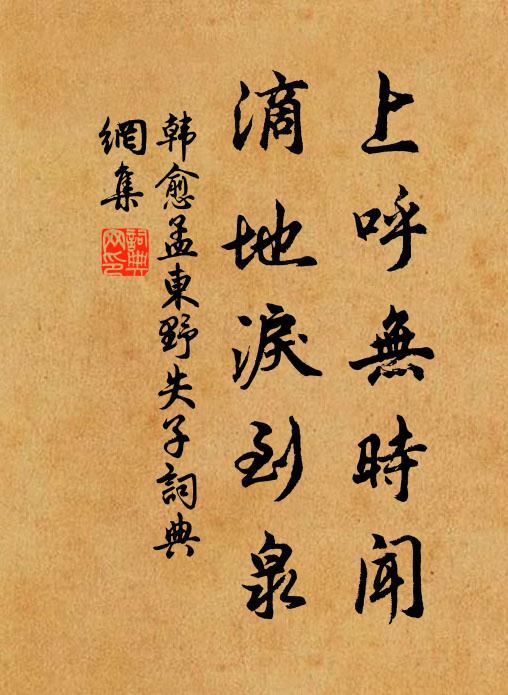 上呼無時聞
滴地淚到泉
韓愈孟東野失子詞典
網集
詞典
網印